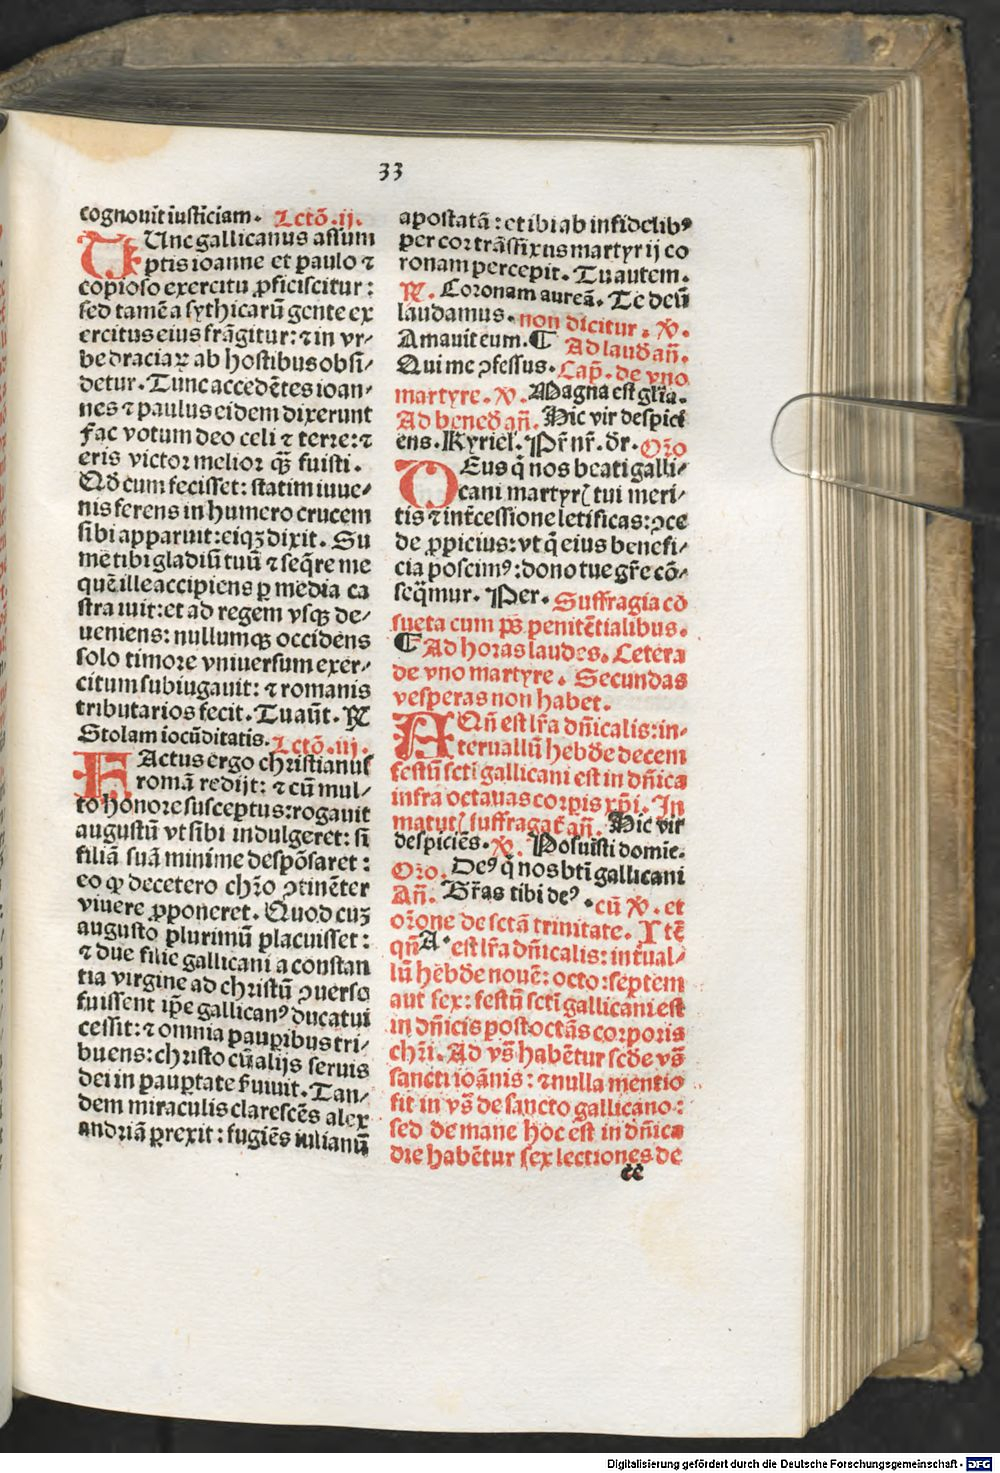 33
cognouit iusticiam. Lctō.ij.
TUnc gallicanus assum
ptis ioanne et paulo ⁊
copioso exercitu ꝓficiscitur:
sed tamē a sythicarū gente ex
ercitus eius frāgitur: ⁊ in vr⸗
be dracia ꝗ ab hostibus obsi⸗
detur. Tunc accedētes ioan⸗
nes ⁊ paulus eidem dixerunt
fac votum deo celi ⁊ terre: ⁊
eris victor melior ꝙ̄ fuisti.
Qđ cum fecisset: statim iuue⸗
nis ferens in humero crucem
sibi apparuit: eiqꝫ dixit. Su
me tibi gladiū tuū ⁊ seq̄re me
quē ille accipiens ꝑ media ca
stra iuit: et ad regem vsqꝫ de⸗
ueniens: nullumqꝫ occidens
solo timore vniuersum exer⸗
citum subiugauit: ⁊ romanis
tributarios fecit. Tuaūt. ℟
Stolam iocūditatis. Lctō.iij.
FActus ergo christianus
romā redijt: ⁊ cū mul⸗
to honore susceptus: rogauit
augustū vt sibi indulgeret: si
filiā suā minime despōsaret:
eo ꝙ decetero chr̄o ꝯtinēter
viuere ꝓponeret. Quod cuꝫ
augusto plurimū placuisset:
⁊ due filie gallicani a constan
tia virgine ad christū ꝯuerse
fuissent ip̄e gallicanꝰ ducatui
cessit: ⁊ omnia pauꝑibus tri⸗
buens: christo cū alijs seruis
dei in pauꝑtate ẜuiuit. Tan⸗
dem miraculis clarescēs alex
andriā ꝑrexit: fugiēs iulianū
apostatā: et ibi ab infidelibꝰ
per cor trāsfixus martyrij co
ronam percepit. Tu autem.
℟. Coronam aureā. Te deū
laudamus. non dicitur. ℣.
Amauit eum. ¶ Ad laud̄ an̄.
Qui me ꝯfessus. Cap̄. de vno
martyre. ℣. Magna est gl̄ia.
Ad bened̄ an̄. Hic vir despici
ens. Kyriel̄. Pr̄ nr̄. d̄r. Or̄o
DEus q̄ nos beati galli⸗
cani martyrꝭ tui meri⸗
tis ⁊ int̄cessione letificas: ꝯce
de ꝓpicius: vt q̄ eius benefi⸗
cia poscimꝰ: dono tue gr̄e cō⸗
seq̄mur. Per. Suffragia cō
sueta cum ps̄ penitētialibus.
¶ Ad horas laudes. Cetera
de vno martyre. Secundas
vesperas non habet.
AQn̄ est lr̄a dn̄icalis: in⸗
teruallū hebd̄e decem
festū scti gallicani est in dn̄ica
infra octauas corpis xp̄i. In
matutꝭ suffragat̄ an̄. Hic vir
despiciēs. ℣. Posuisti domie.
Or̄o. Deꝰ q̄ nos bt̄i gallicani
An̄. Br̄as tibi deꝰ. cū ℣. et
or̄one de sctā trinitate. Itē
qn̄ A. est lr̄a dn̄icalis: int̄ual⸗
lū hebd̄e nouē: octo: septem
aut sex: festū scti gallicani est
in dn̄icis post octās corporis
chr̄i. Ad vs̄ habētur scd̄e vs̄
sancti ioānis: ⁊ nulla mentio
fit in vs̄ de sancto gallicano:
sed de mane hoc est in dn̄ica
die habētur sex lectiones de
cc
Digitalisierung gefördert durch die Deutsche Forschungsgemeinschaft - DFG